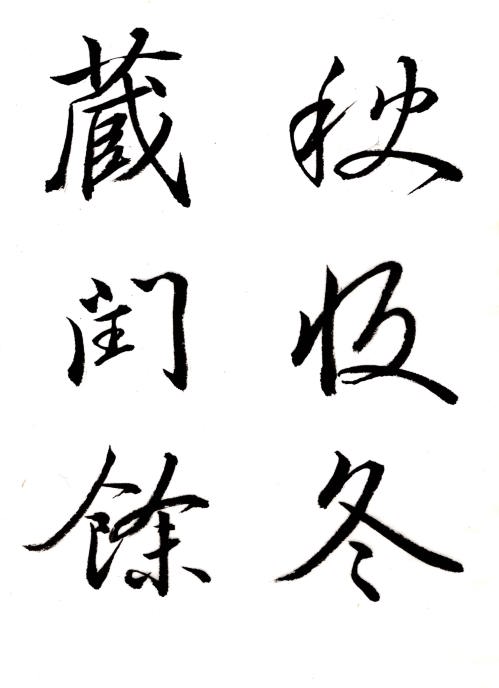 秋收冬
藏闰餘